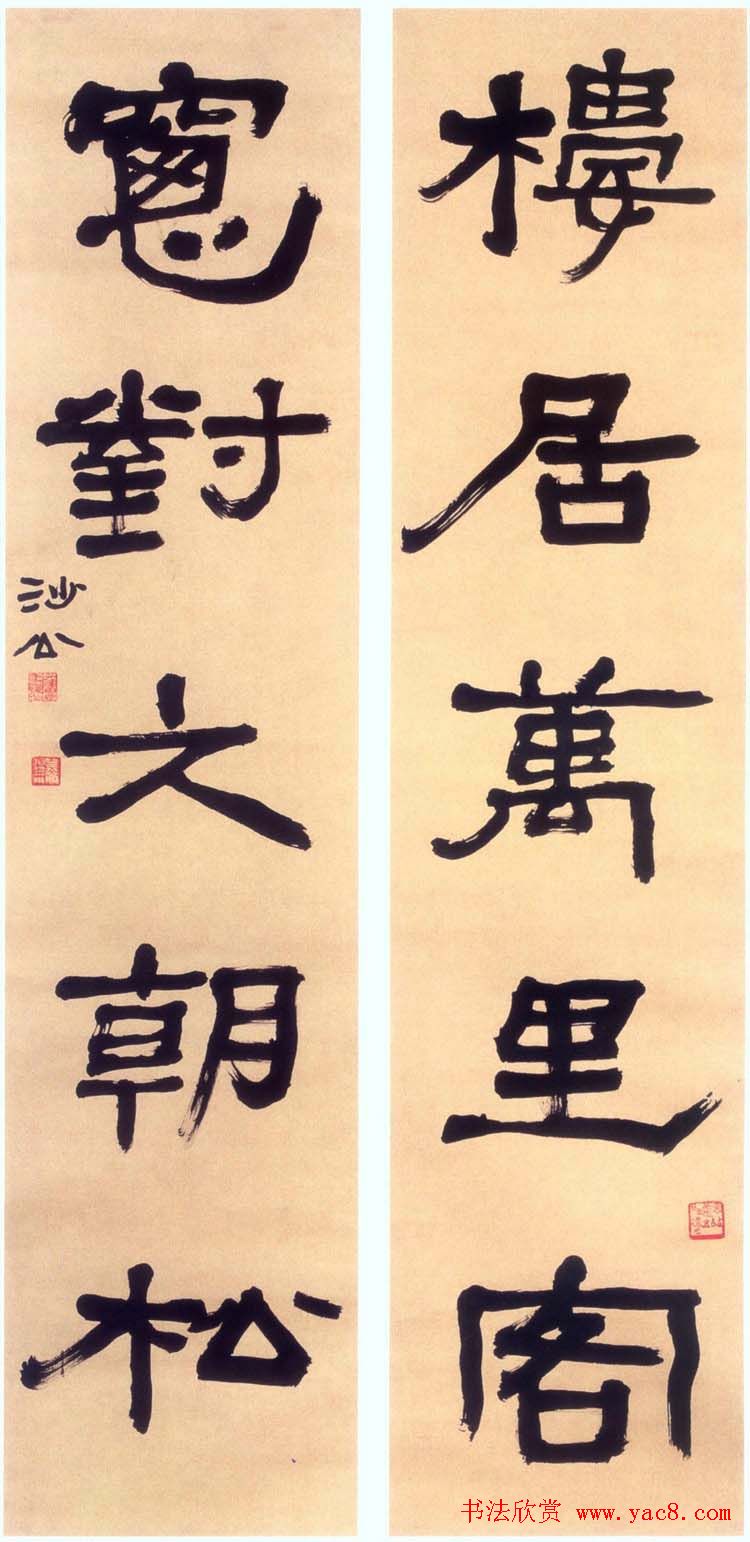 樓居萬里客
窻對六朝松
沙公
书法欣赏 www.yac8.com